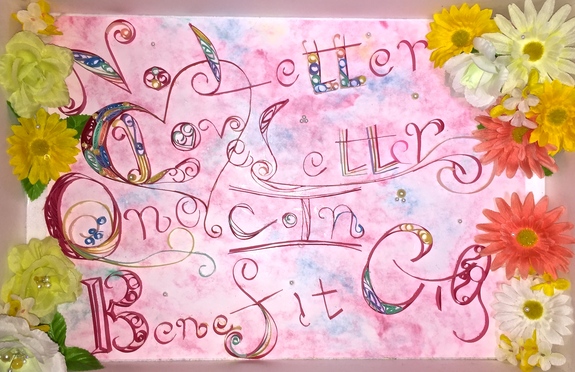 No Letter
Cover Letter
One coIn
Benefit Gig